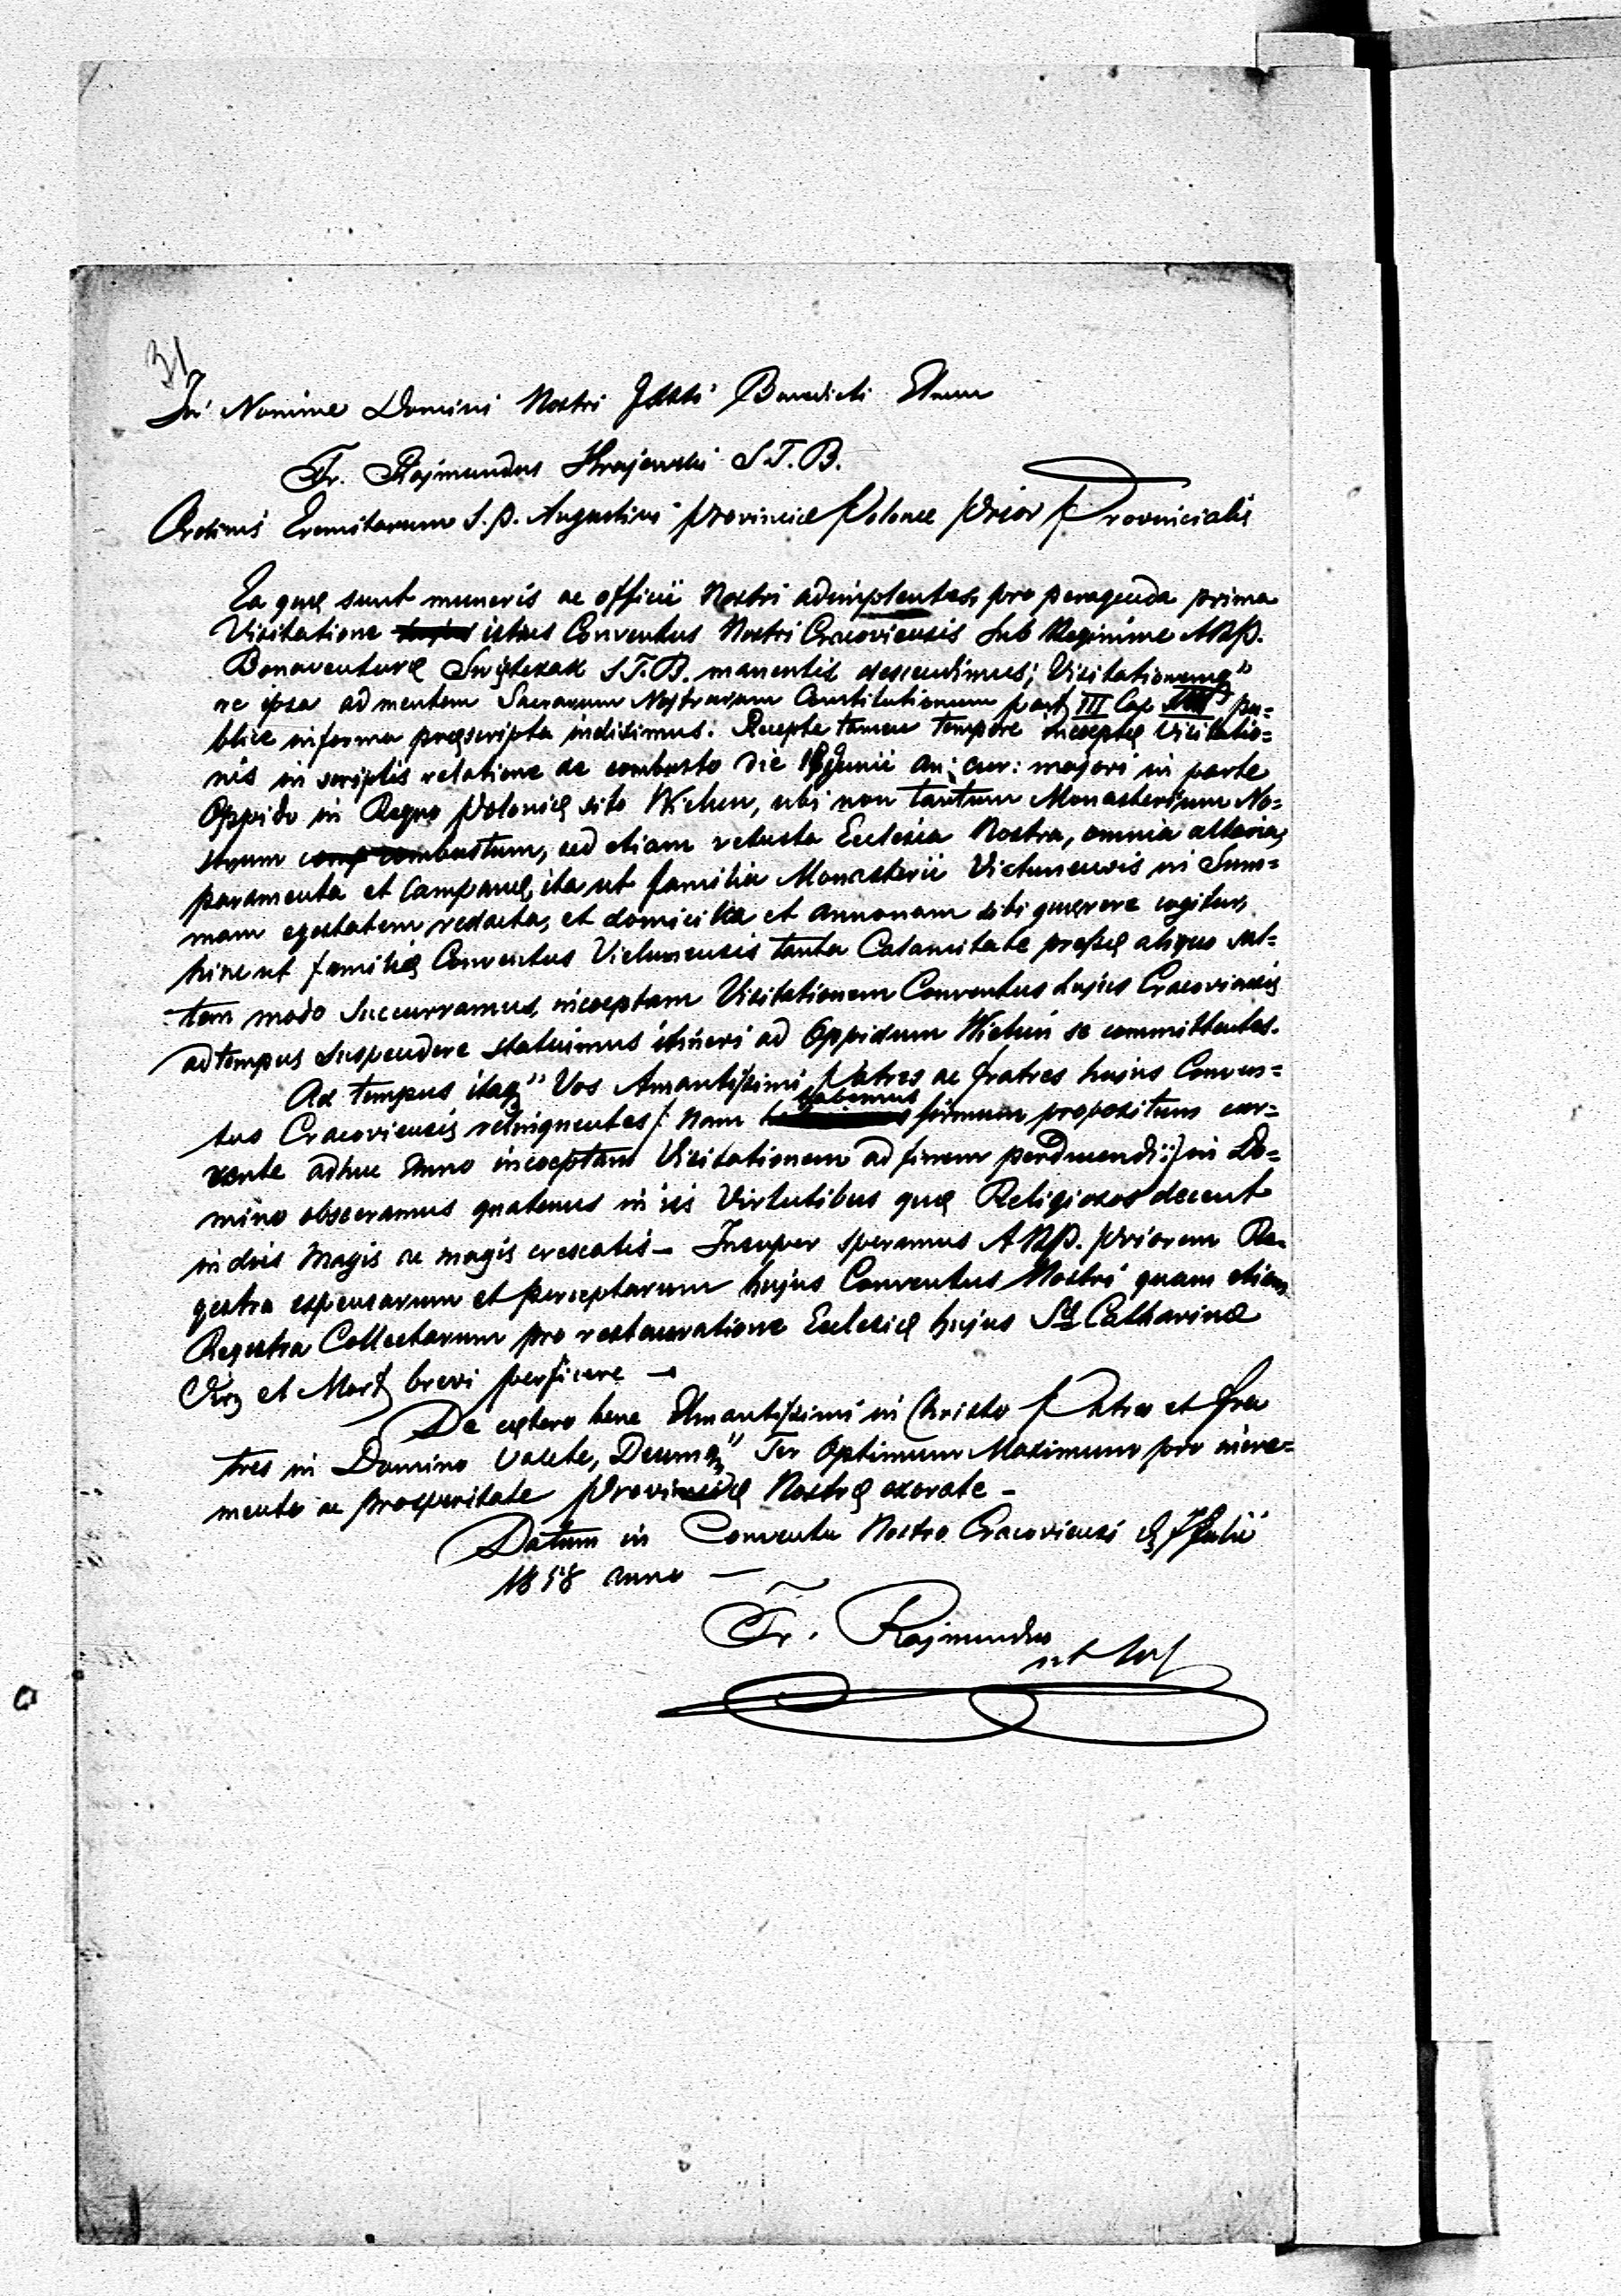 31
In Nomine Domini Nostri Jesu Benedicti Amen
Fr. Rajmundus Krajewski S.T.B.
Ordinis Eremitarum S. P. Augustini Provinciæ Polonæ Prior Provincialis
Ea quę sunt muneris ac officii Nostri adimplentes, pro peragenda prima
Visitatione istius Conventus Nostri Cracoviensis sub Regimine ARP.
Bonaventurę S.T.B. manentis descendimus; Visitationemq"
re ipsa ad mentem Sacrarum Nostrarum Constitutionum part III Cap pu=
blice in forma pręscripta indiximus: Recepta tamen tempore inceptę Visitatio=
nis in scriptis relatione de combusto die Junii an: cur: majori in parte
Oppido in Regno Polonię sito Wieluń, ubi non tantum Monasterium No=
strum combustum, sed etiam vetusta Ecclesia Nostra, omnia altaria,
paramenta et Campanę, ita ut familia Monasterii Vielunensis in Sum=
mam egestatem redacta, et domicilia et annonam sibi quęrere cogitur,
hinc ut familię Conventus Vielunensis tanta Calamitate pressę aliquo sal=
tem modo Succurramus, inceptam Visitationem Conventus hujus Cracoviensis
ad tempus suspendere statuimus itineri ad Oppidum Wieluń se committentes.
Ad tempus itaq" Vos Amantissimi Patres ac fratres hujus Conven=
tus Cracoviensis relinquentes /: nam habemus firmum propositum cur=
rente adhuc Anno inceptam Visitationem ad finem perducendi :/ in Do=
mino obsecramus quatenus in iis Virtutibus quę Religiosos decent
in dies magis ac magis crescatis — Insuper speramus ARP. Priorem Re=
gestra expensarum et perceptarum hujus Conventus Nostri quam etiam
Regestra Collectarum pro restauratione Ecclesię hujus Sæ Catharinæ
Virg et Mart brevi perficere —
De cętero bene Amantissimi in Christo Patres et fra
tres in Domino Valete, Deumq" Ter Optimum Maximum pro incre=
mento ac prosperitate Provincię Nostrę exorate —
Datum in Conventu Nostro Cracoviensi d 7 Julii
1858 anno —
Fr. Rajmundus
ut sup